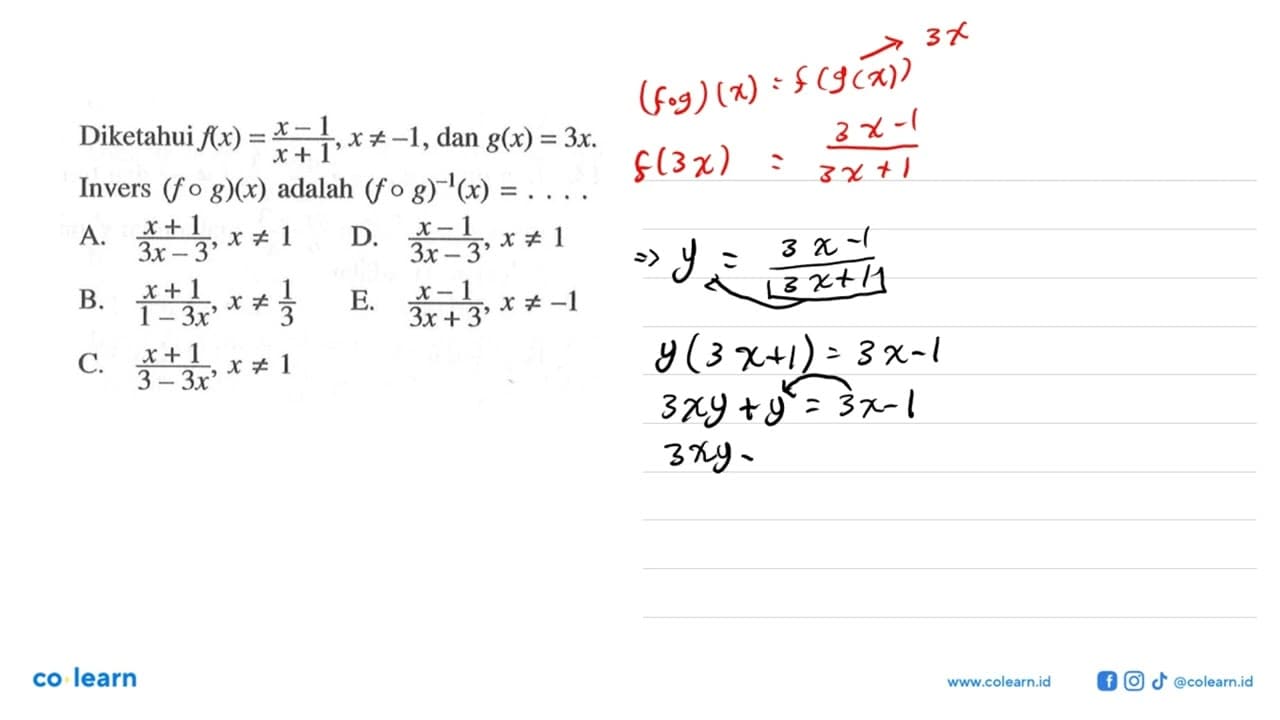 Diketahui f(x) = \frac{x – 1}{x + 1}, x ≠ –1, dan g(x) = 3x.
Invers (f ∘ g)(x) adalah (f ∘ g)⁻¹(x) = . . . .
A. \frac{x + 1}{3x – 3}, x ≠ 1
D. \frac{x – 1}{3x – 3}, x ≠ 1
B. \frac{x + 1}{1 – 3x}, x ≠ \frac{1}{3}
E. \frac{x – 1}{3x + 3}, x ≠ –1
C. \frac{x + 1}{3 – 3x}, x ≠ 1
(fog)(x) = f(g(x)) → 3x
f(3x) = \frac{3x-1}{3x+1}
=> y = \frac{3x-1}{3x+1}
y(3x+1) = 3x-1
3xy + y = 3x-1
3xy -
co learn
www.colearn.id
@colearn.id